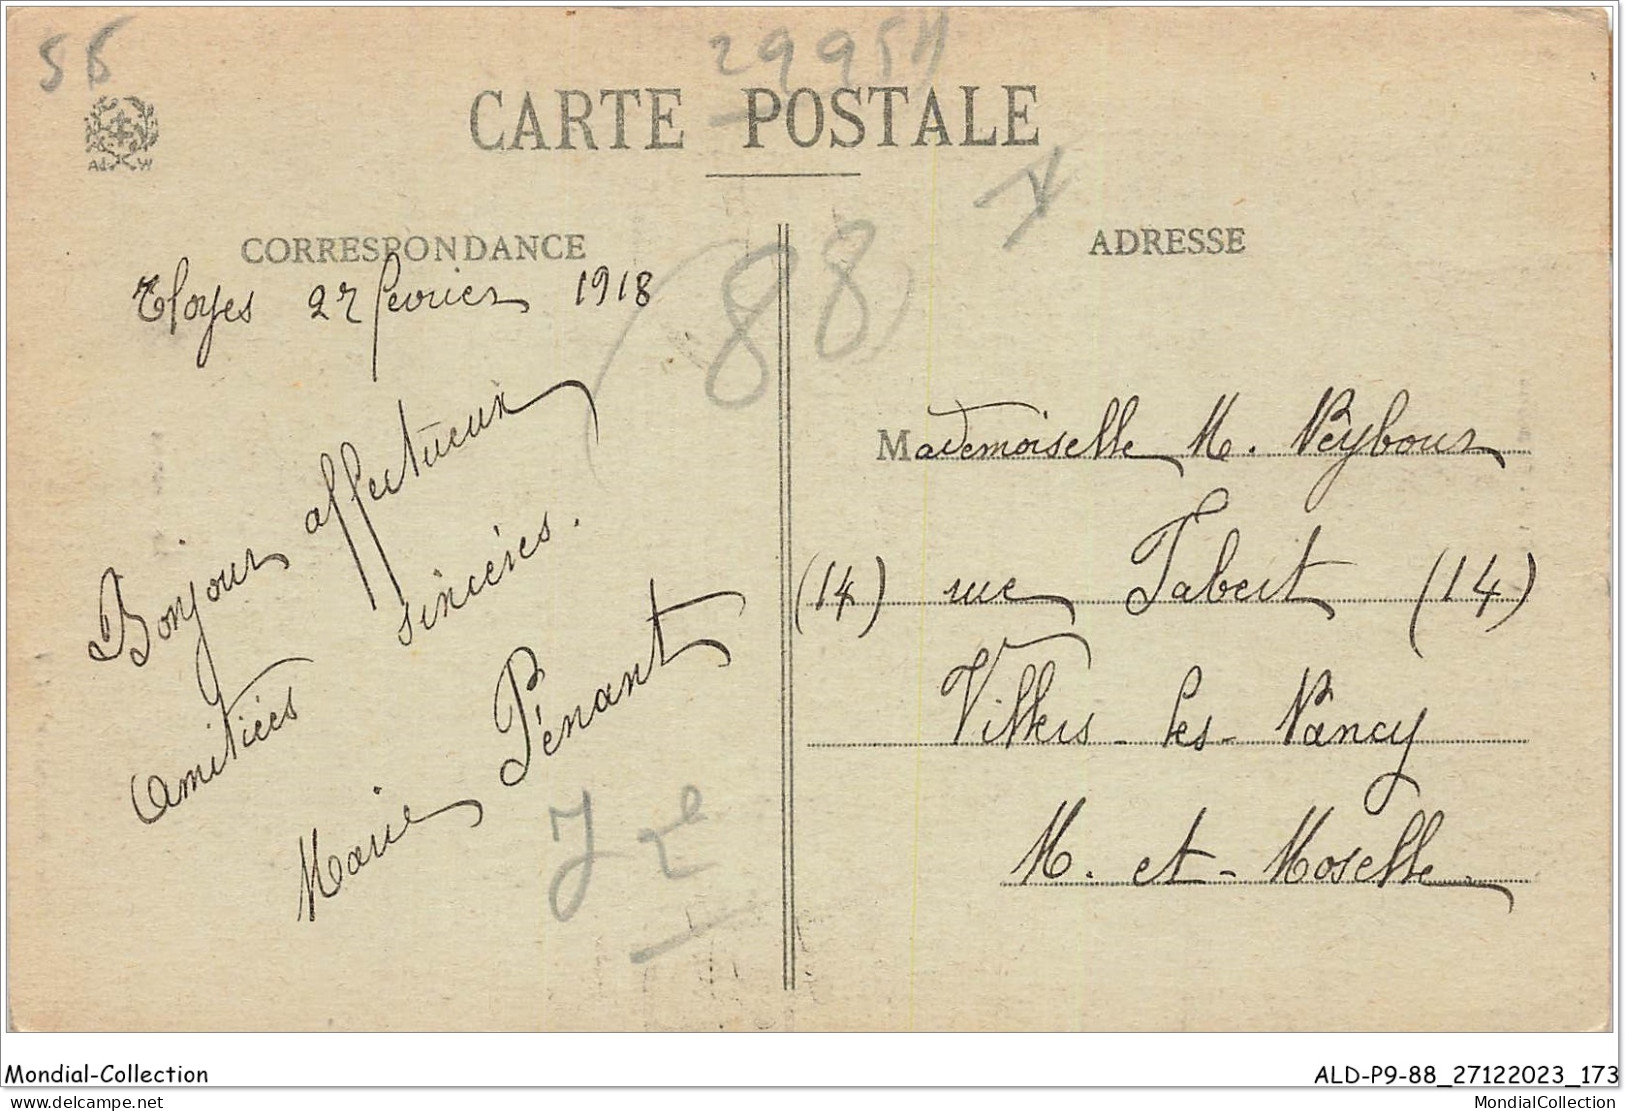 56
29954
CARTE POSTALE
CORRESPONDANCE
Eloyes 27 fevrier 1918
88
Bonjour affectueux
amitiées sincéres.
Marie Pénant
J 2e
ADRESSE
Mademoiselle M. Neybour
(14) rue Jabert (14)
Villers-les-Nancy
M. et-Moselle.
Mondial-Collection
ALD-P9-88_27122023_173
www.delcampe.net
MondialCollection